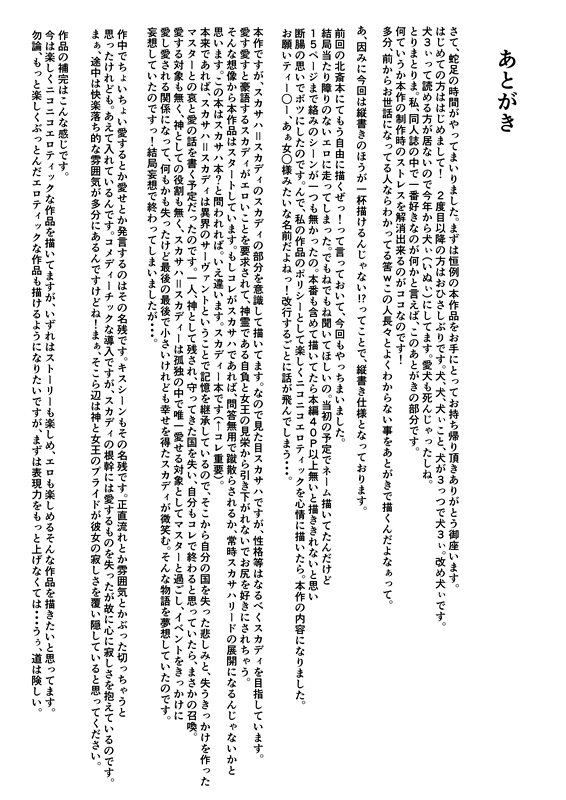 あとがき
さて、蛇足の時間がやってまいりました。まずは恒例の本作品をお手にとってお持ち帰り頂きありがとう御座います。
はじめての方ははじめまして！　２度目以降の方はおひさしぶりです。犬、犬、犬ぃこと、犬が３っつで犬３ぃ。改め犬ぃです。
犬３ぃって読める方が居ないので今年から犬ぃ（いぬぃ）にしてます。愛犬も死んじゃったしね。
とりまとりま。私、同人誌の中で一番好きなのが何かと言えば、このあとがきの部分です。
何ていうか本作の制作時のストレスを解消出来るのがココなのです！
多分、前からお世話になってる人ならわかってる筈ｗこの人長々とよくわからない事をあとがきで描くんだよなぁって。
あ、因みに今回は縦書きのほうが一杯描けるんじゃない!?ってことで、縦書き仕様となっております。
前回の北斎本にてもう自由に描くぜっ！って言っておいて、今回もやっちまいました。
結局当たり障りのないエロに走ってしまった。でもねでもね聞いてほしいの。当初の予定でネーム描いてたんだけど
１５ページまで絡みのシーンが一つも無かったの。本番も含めて描いてたら本編４０Ｐ以上無いと描ききれないと思い
断腸の思いでボツにしたのです。んで、私の作品のポリシーとして楽しくニコニコエロティックを心情に描いたら。本作の内容になりました。
お願いティー〇ー、あぁ女〇様みたいな名前だよねっ！改行するごとに話が飛んでしまう・・・。
本作ですが、スカサハ＝スカディのスカディの部分を意識して描いてます。なので見た目スカサハですが、性格等はなるべくスカディを目指しています。
愛す愛すと豪語するスカディがエロいことを要求されて、神霊である自負と女王の見栄から引き下がれないでお尻を好きにされちゃう。
そんな想像から本作品はスタートしています。もしコレがスカサハであれば、問答無用で蹴散らされるか、常時スカサハリードの展開になるんじゃないかと
思います。この本はスカサハ本？と問われれば。いえ違います。スカディー本です（←コレ重要）。
本来であれば、スカサハ＝スカディは異界のサーヴァントということで記憶を継承しているので、そこから自分の国を失った悲しみと、失うきっかけを作った
マスターとの哀と愛の話を書く予定だったのです。一人、神として残され、守ってきた国を失い、自分もコレで終わると思っていたら、まさかの召喚。
愛する対象も無く、神としての役割も無く、スカサハ＝スカディーは孤独の中で唯一愛せる対象としてマスターと過ごし、イベントをきっかけに
愛し愛される関係になって、何もかも失ったけど最後の最後で小さいけれども幸せを得たスカディが微笑む。そんな物語を夢想していたのです。
妄想していたのですっ！結局妄想で終わってしまいましたが・・・。
作中でちょいちょい愛するとか愛せとか発言するのはその名残です。キスシーンもその名残です。正直流れとか雰囲気とかぶった切っちゃうと
思ったけれども。あえて入れているんです。コメディーチックな導入ですが、スカディの根幹には愛するものを失ったが故に心に寂しさを抱えているのです。
まぁ、途中は快楽落ち的な雰囲気が多分にあるんですけどね！まぁ、そこら辺は神と女王のプライドが彼女の寂しさを覆い隠していると思ってください。
作品の補完はこんな感じです。
今は楽しくニコニコエロティックな作品を描いてますが、いずれはストーリーも楽しめ、エロも楽しめるそんな作品を描きたいと思ってます。
勿論、もっと楽しくぶっとんだエロティックな作品も描けるようになりたいですが、まずは表現力をもっと上げなくては・・・うぅ、道は険しい。